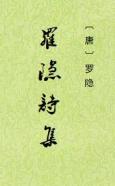 〔唐〕罗隐
羅隱詩集